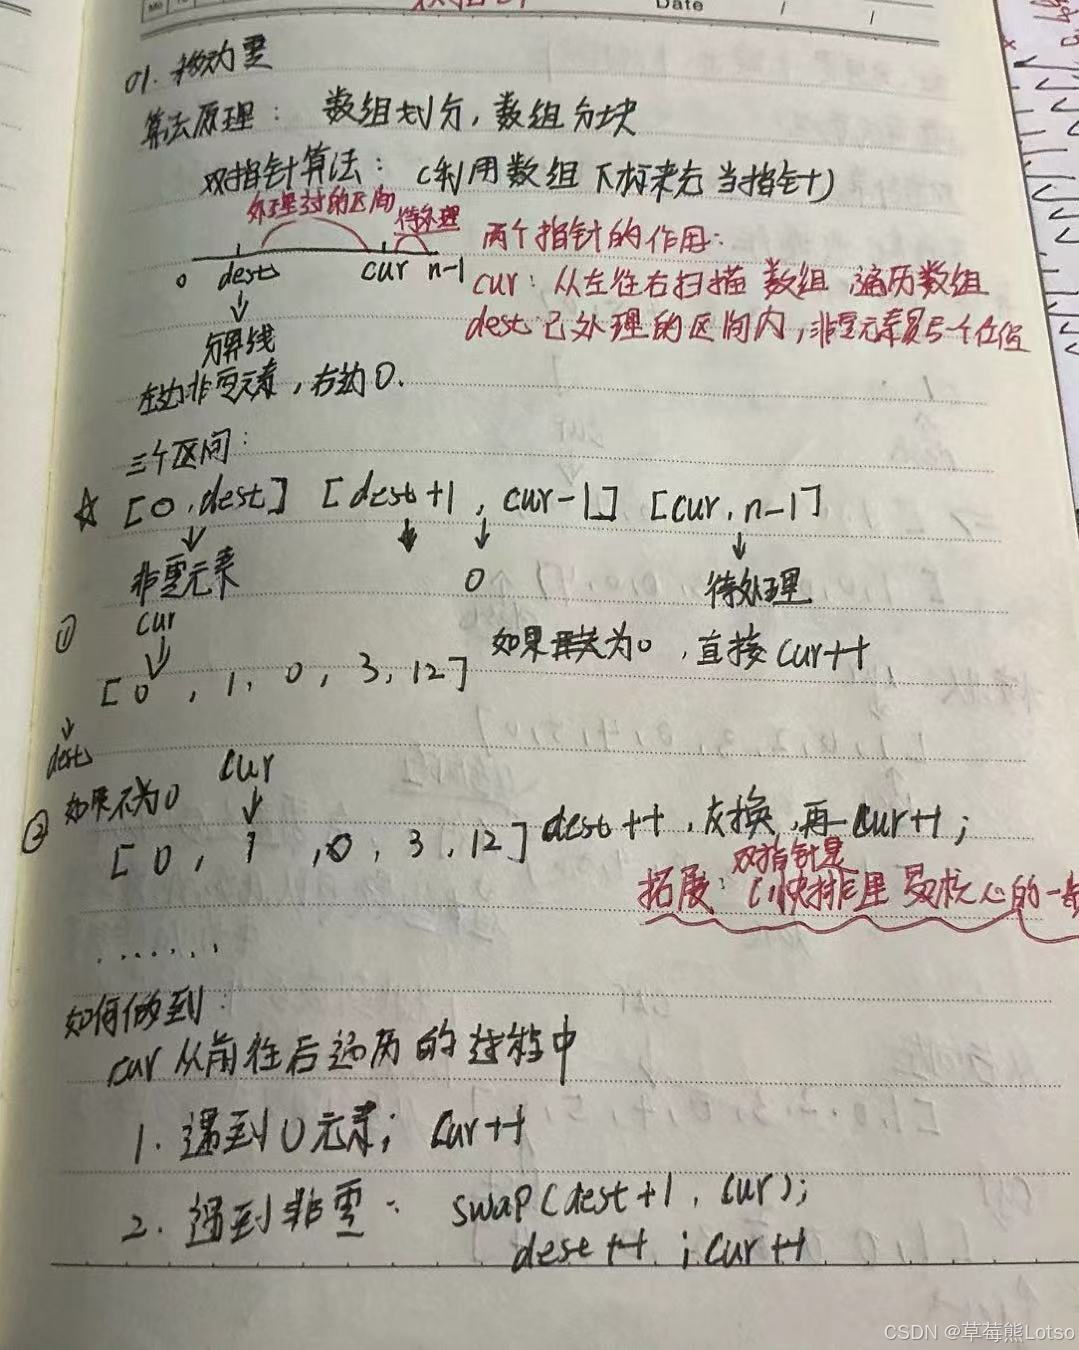 Date / /
01. 移动零
算法原理： 数组划分，数组分块
双指针算法：（利用数组下标来充当指针）
处理过的区间 待处理
0 dest cur n-1
两个指针的作用：
cur：从左往右扫描数组 遍历数组
dest 已处理的区间内，非零元素最后一个位置
分界线
左边非零元素，右边0.
三个区间：
☆ [0,dest] [dest+1, cur-1] [cur, n-1]
非零元素 0 待处理
① cur
[0, 1, 0, 3, 12] 如果为0，直接cur++
dest
② 如果不为0 cur
[0, 1, 0, 3, 12] dest++，交换，再cur++;
双指针是
拓展：快排里最核心的一步
.......
如何做到：
cur从前往后遍历的过程中
1. 遇到0元素；cur++
2. 遇到非零： swap(dest+1, cur);
dest++; cur++
CSDN @草莓熊Lotso